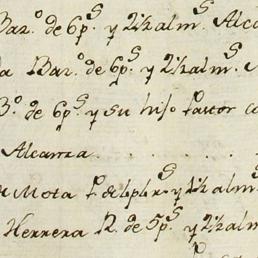 Bar.º de 6p.S y 2½ alm.S Alca
a Bar.º de 6p.S y 2½ alm.S
B.º de 6p.S y su hijo
Alcanza . . . .
Mota P. de y 2½ alm.S
Herrera R. de 5p.S y 2½ alm.S